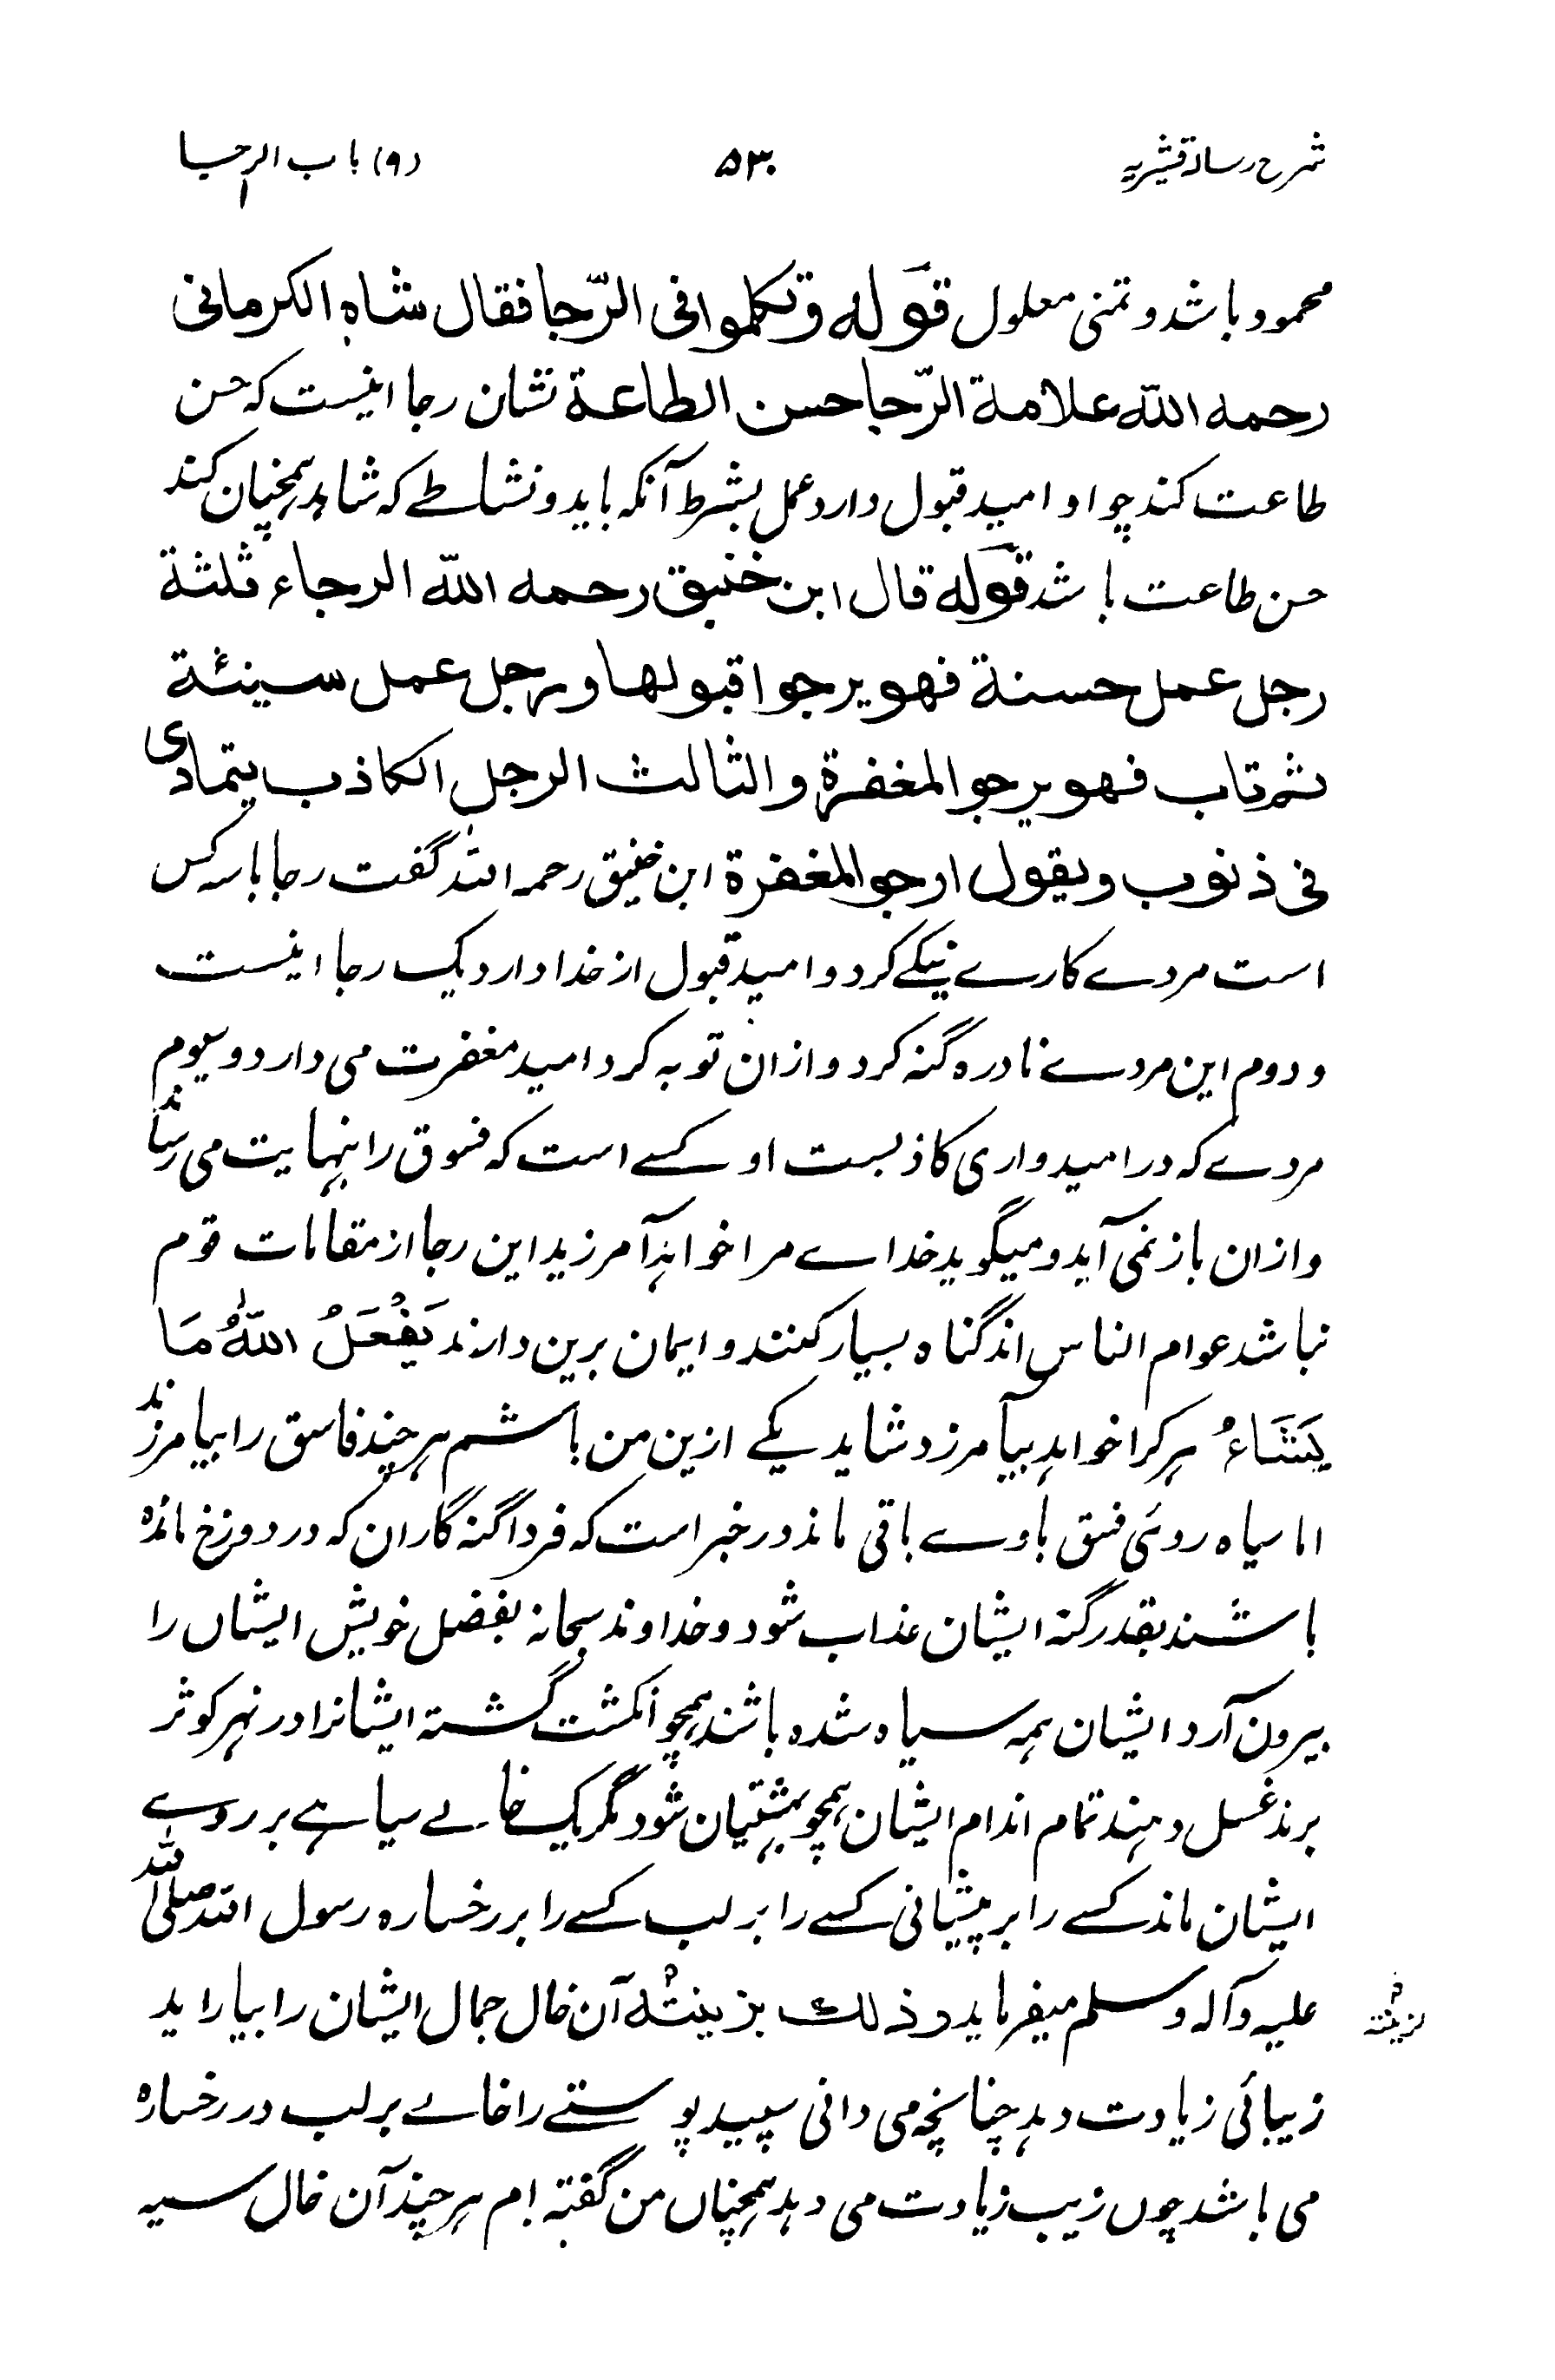 شرح رسالۂ قشیریہ ۵۳۰ (۹) باب الرجا
محمود باشد و تمنی معلول قولہ وتکلموا فی الرّجا فقال شاہ الکرمانی
رحمہ اللہ علامۃ الرّجا حسن الطاعۃ نشان رجا اینست کہ حسن
طاعت کند چو او امید قبول دارد عمل بشرط آنکہ باید و نشاطے کہ شاید ہمچنان کند
حسن طاعت باشد قولہ قال ابن خنیق رحمہ اللہ الرجاء ثلثۃ
رجل عمل حسنۃ فھو یرجوا قبولھا ورجل عمل سیئۃ
ثم تاب فھو یرجو المغفرۃ والثالث الرجل الکاذب یتمادی
فی ذنوب ویقول ارجو المغفرۃ ابن خنیق رحمہ اللہ گفت رجا با سہ کس
است مردے کارے نیکے کرد و امید قبول از خدا دارد یک رجا اینست
و دوم این مردے نادرہ گنہ کرد و ازان توبہ کرد امید مغفرت می دارد و سیوم
مردے کہ در امیدواری کاذبست او کسے است کہ فسوق را بنہایت می رساند
وازان باز نمی آید و میگوید خداے مرا خواہد آمرزید این رجا از مقامات قوم
نباشد عوام الناس اند گناہ بسیار کنند و ایمان برین دارند یَفْعَلُ اللّٰہُ مَا
یَشَاءُ ہر کرا خواہد بیآمرزد شاید یکے ازین من باشم ہر چند فاسق را بیامرزند
اما سیاہ روئی فسق با وے باقی ماند در خبر است کہ فردا گنہگاران کہ در دوزخ ماندہ
باشند بقدر گنہ ایشان عذاب شود و خداوند سبحانہ بفضل خویش ایشاں را
بیرون آرد ایشان ہمہ سیاہ شدہ باشند ہمچو انگشت گشتہ ایشانرا در نہر کوثر
برند غسل دہند تمام اندام ایشان ہمچو بہشتیان شود مگر یک خالے سیاہے بر روے
ایشان ماند کسے را بر پیشانی کسے را بر لب کسے را بر رخسارہ رسول اللہ صلی اللہ
علیہ وآلہ وسلم میفرماید و ذلک بزینتہ آن خال جمال ایشان را بیاراید
لزینتہ
زیبائی زیادت دہد چنانچہ می دانی سپید پوستے را خالے بر لب در رخسارہ
می باشد چوں زیب زیادت می دہد ہمچناں من گفتہ ام ہر چند آن خال سیہ